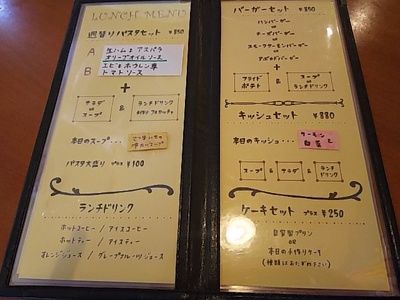 LUNCH MENU
週替りパスタセット ¥850
A 生ハムとアスパラ
オリーブオイルソース
B エビとホウレン草
トマトソース
+
サラダ
or
スープ
&
ランチドリンク
本日のスープ・・・
パスタ大盛り プラス ¥100
ランチドリンク
ホットコーヒー / アイスコーヒー
ホットティー / アイスティー
オレンジジュース / グレープフルーツジュース
バーガーセット ¥850
ハンバーガー
or
チーズバーガー
or
スモークサーモンバーガー
or
アボカドバーガー
+
フライドポテト
&
スープ
or
ランチドリンク
キッシュセット ¥880
本日のキッシュ・・・
サーモン
白菜
スープ
&
サラダ
&
ランチドリンク
ケーキセット プラス ¥250
自家製プリン
OR
本日の手作りケーキ
(種類はおたずね下さい)